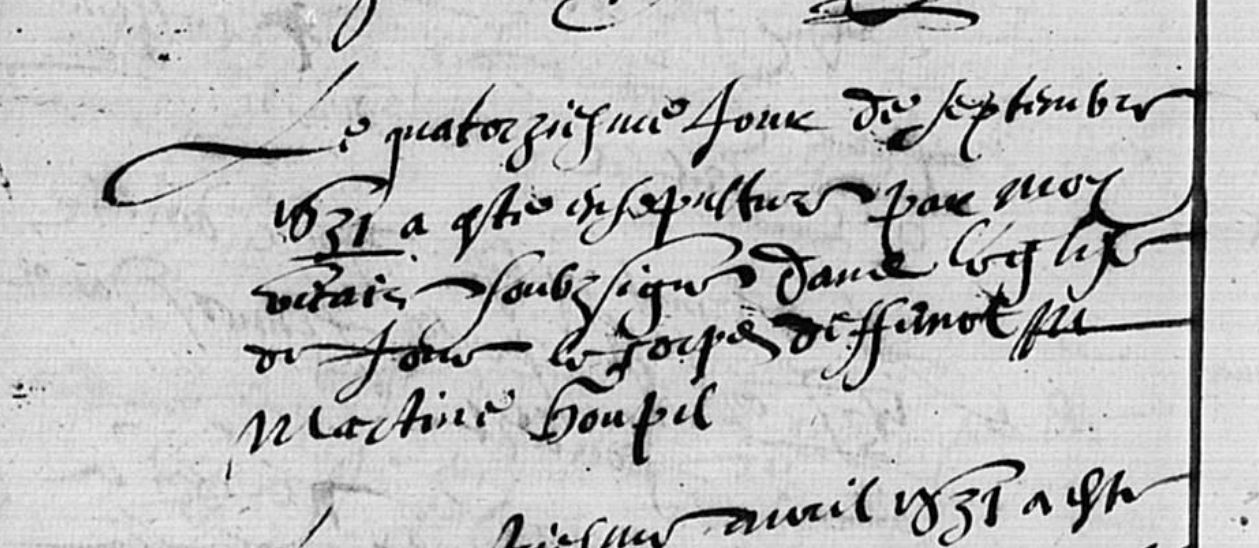 Le quatorziesme Jour de septembre
1631 a este ensepulturé par moy
vicaire soubzsigné dans leglise
de Joue le corps deffunct
Martine Houpil
avril 1631 a este